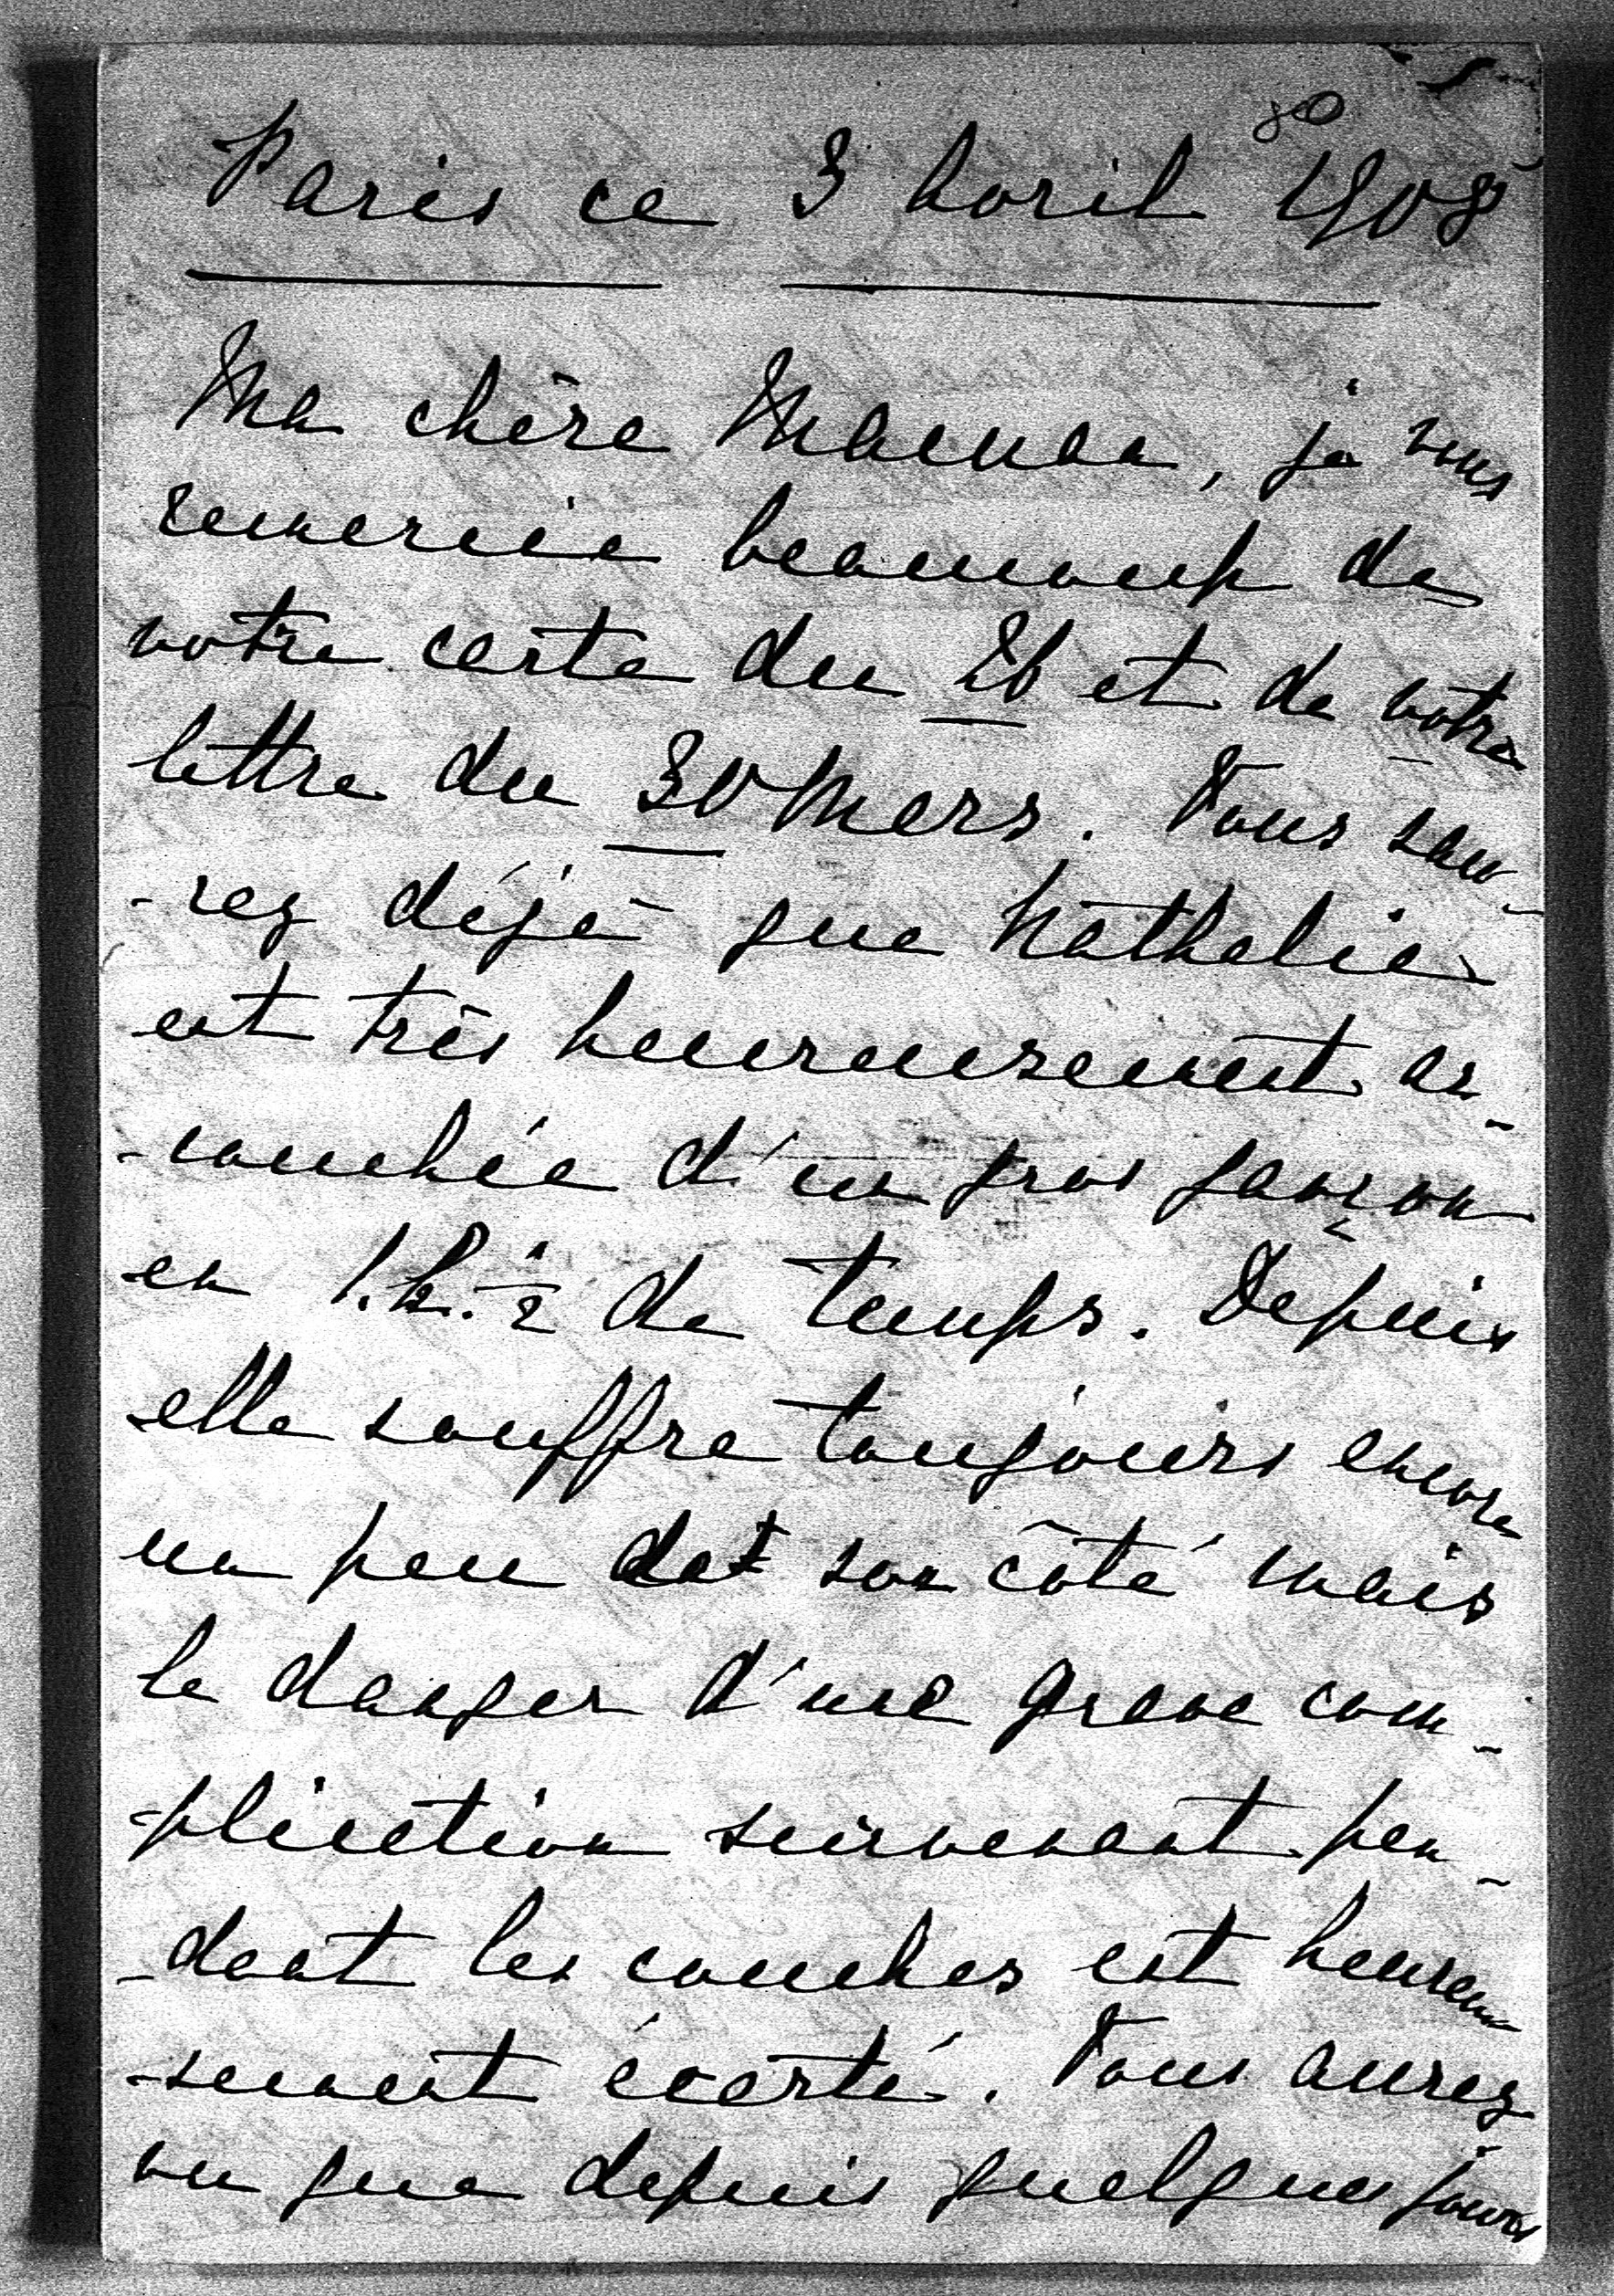 80
Paris ce 3 Avril 1908
Ma chère Maman, je vous
remercie beaucoup de
votre carte du 26 et de votre
lettre du 30 Mars. Vous sau-
-rez déjà que Nathalie
est très heureusement ac-
-couchée d'un gros garçon
en 1.h. ½ de temps. Depuis
elle souffre toujours encore
un peu de son côté mais
le danger d'une grave com-
-plication survenant pen-
-dant les couches est heureu
-sement écarté. Vous aurez
vu que depuis quelques jours